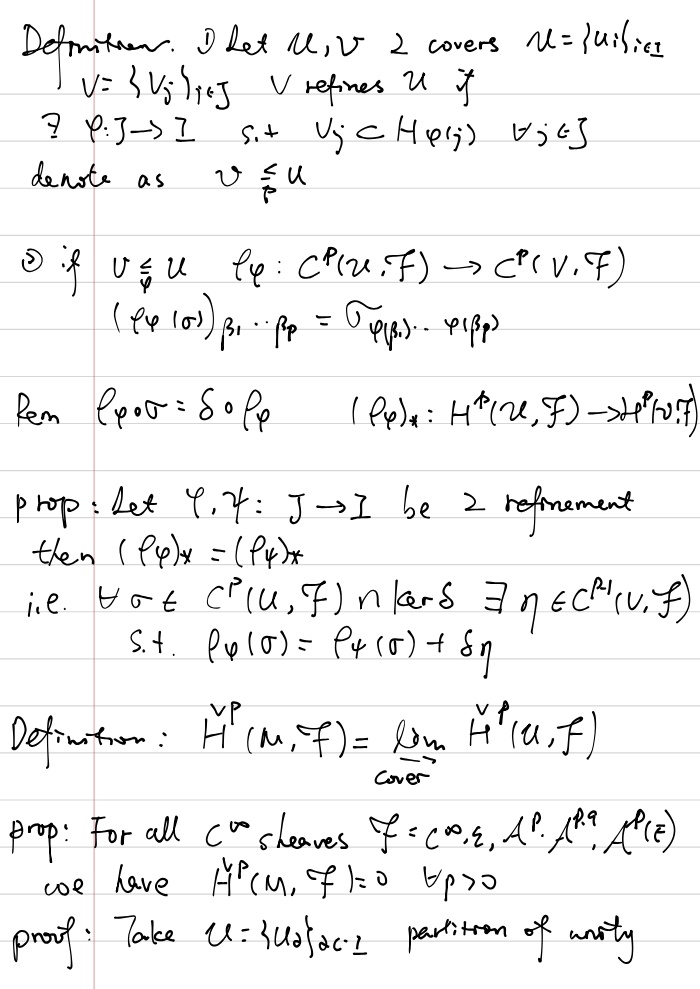 Definition. ① Let U, V 2 covers U = {Ui}i∈I
V = {Vj}j∈J V refines U if
∃ φ: J → I s.t Vj ⊂ Hφ(j) ∀j∈J
denote as V ≤φ U
② if V ≤φ U ρφ: C^p(U, F) → C^p(V, F)
(ρφ(σ))β1··βp = σφ(β1)··φ(βp)
Rem ρφ∘σ = δ∘ρφ (ρφ)*: H^p(U, F) → H^p(V, F)
prop: Let φ, ψ: J → I be 2 refinement
then (ρφ)* = (ρψ)*
i.e. ∀ σ ∈ C^p(U, F) ∩ ker δ ∃ η ∈ C^{p-1}(V, F)
s.t. ρφ(σ) = ρψ(σ) + δη
Definition: Ȟ^p(M, F) = lim Ȟ^p(U, F)
→
cover
prop: For all C^∞ sheaves F = C^∞, ε, A^p, A^{p,q}, A^p(E)
we have Ȟ^p(M, F) = 0 ∀p>0
proof: Take U = {Uα}α∈I partition of unity